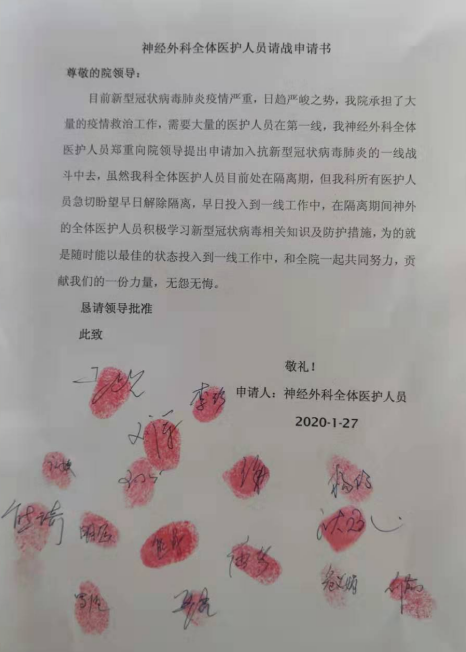 神经外科全体医护人员请战申请书
尊敬的院领导：
目前新型冠状病毒肺炎疫情严重，日趋严峻之势，我院承担了大
量的疫情救治工作，需要大量的医护人员在第一线，我神经外科全体
医护人员郑重向院领导提出申请加入抗新型冠状病毒肺炎的一线战
斗中去，虽然我科全体医护人员目前处在隔离期，但我科所有医护人
员急切盼望早日解除隔离，早日投入到一线工作中，在隔离期间神外
的全体医护人员积极学习新型冠状病毒相关知识及防护措施，为的就
是随时能以最佳的状态投入到一线工作中，和全院一起共同努力，贡
献我们的一份力量，无怨无悔。
恳请领导批准
此致
敬礼！
申请人：神经外科全体医护人员
2020-1-27